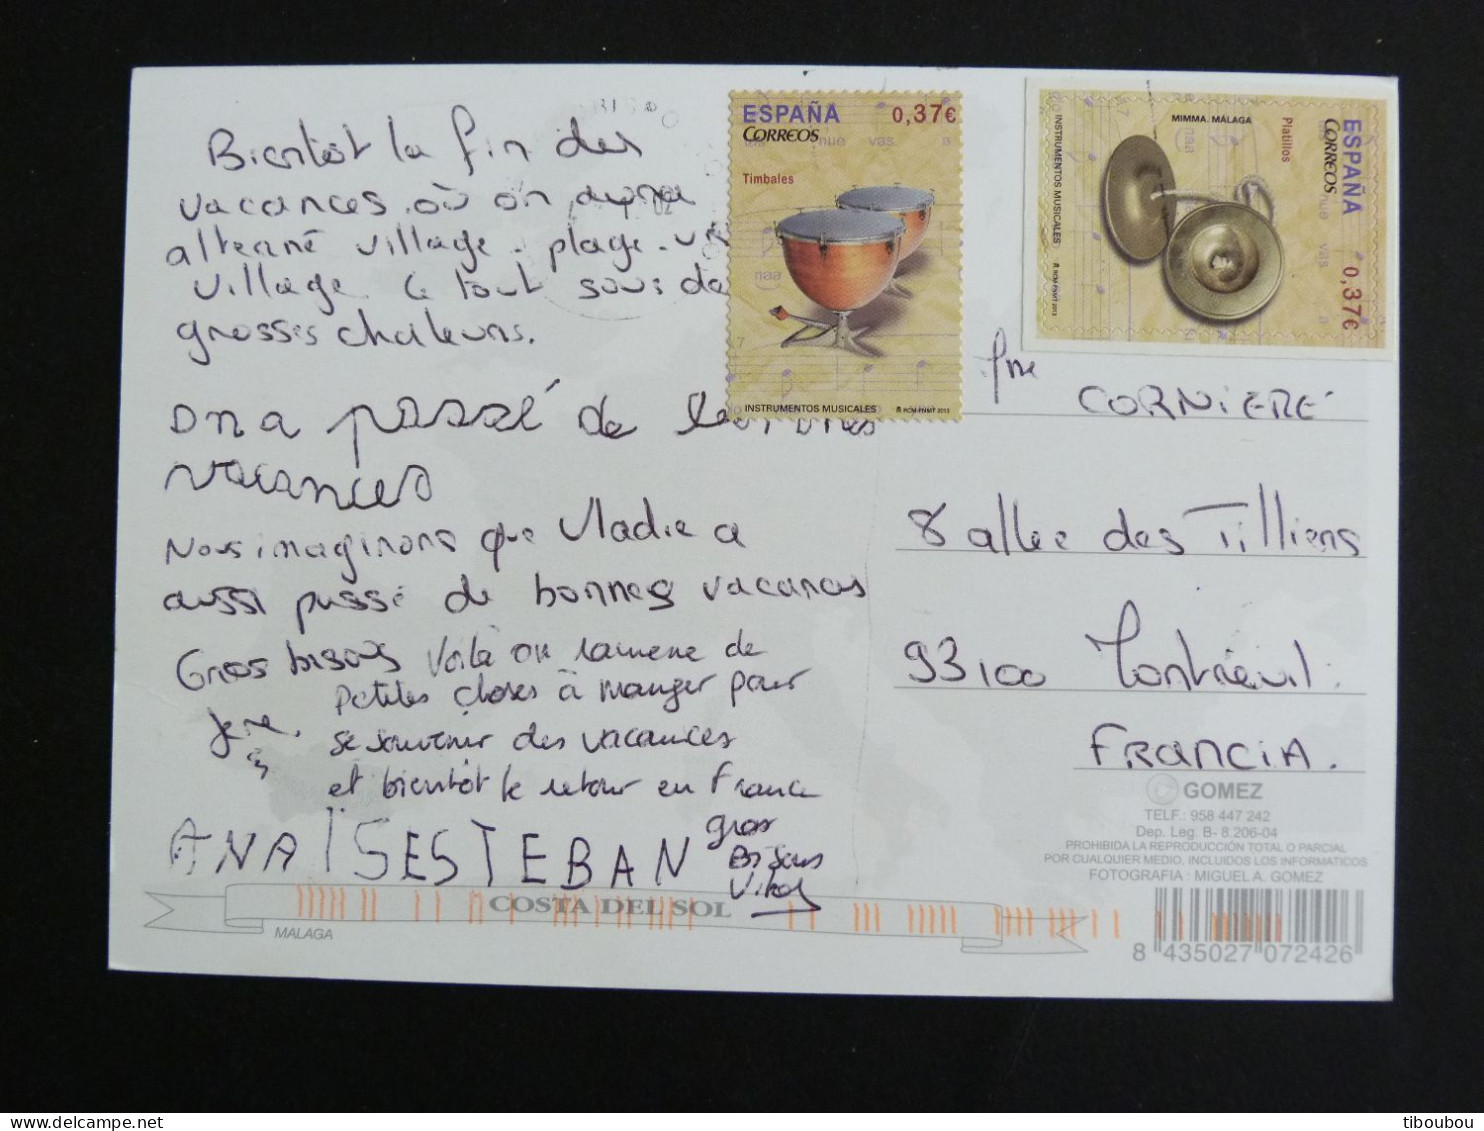 Bientôt la fin des
vacances où on aura
alterné village - plage -
village. Ce tout sous de
grosses chaleurs.
on a passé de
vacances
Nous imaginons que Vladie a
aussi passé de bonnes vacances
Gros bisous
Voilà on ramène de
petites choses à manger pour
se souvenir des vacances
et bientôt le retour en France
gros
Bisous
ANAÏS ESTEBAN
COSTA DEL SOL
MALAGA
ESPAÑA 0,37€
CORREOS
Timbales
INSTRUMENTOS MUSICALES RCM-FNMT 2013
MIMMA. MÁLAGA
Platillos
ESPAÑA 0,37€
CORREOS
INSTRUMENTOS MUSICALES
RCM-FNMT 2013
Mme
CORNIERE
8 allée des Tilliens
93100 Montreuil.
FRANCIA.
GOMEZ
TELF.: 958 447 242
Dep. Leg. B- 8.206-04
PROHIBIDA LA REPRODUCCIÓN TOTAL O PARCIAL
POR CUALQUIER MEDIO, INCLUIDOS LOS INFORMATICOS
FOTOGRAFIA : MIGUEL A. GOMEZ
8 435027 072426
tiboubou